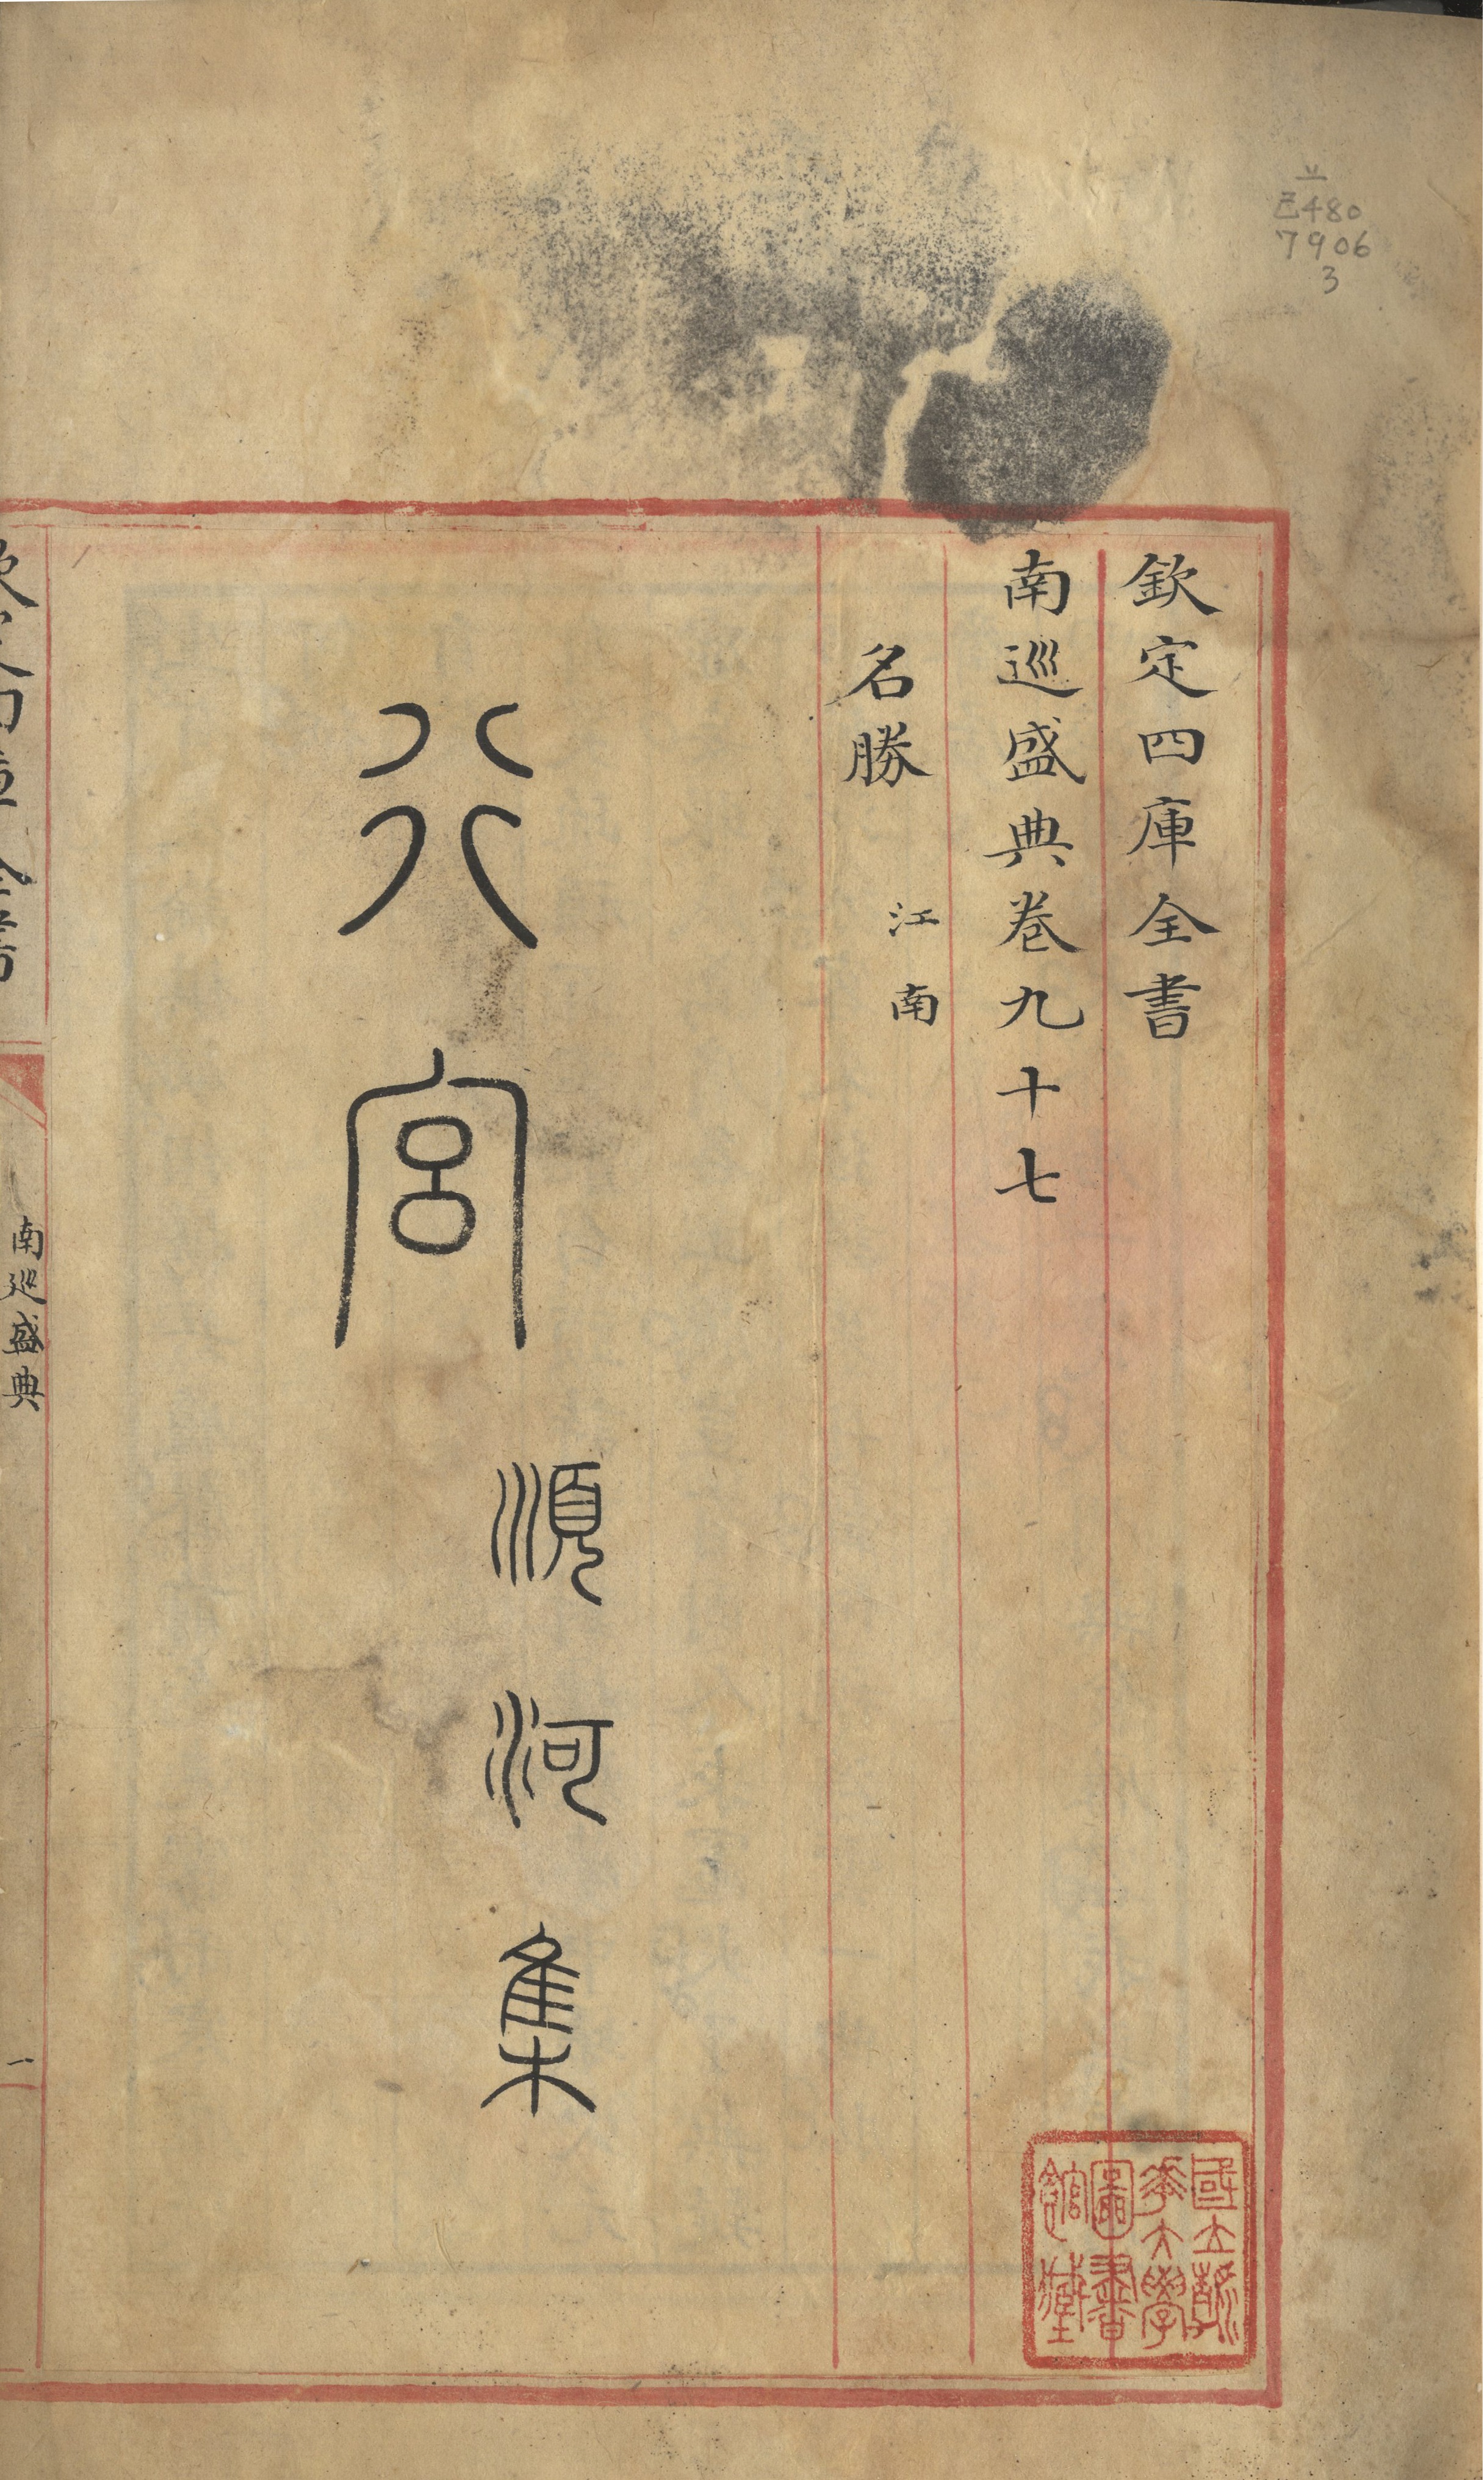 己480
7906
3
欽定四庫全書
南巡盛典卷九十七
名勝 江南
行宮 順河集
欽定四庫全書
南巡盛典
一
國立清
華大學
圖書
館藏